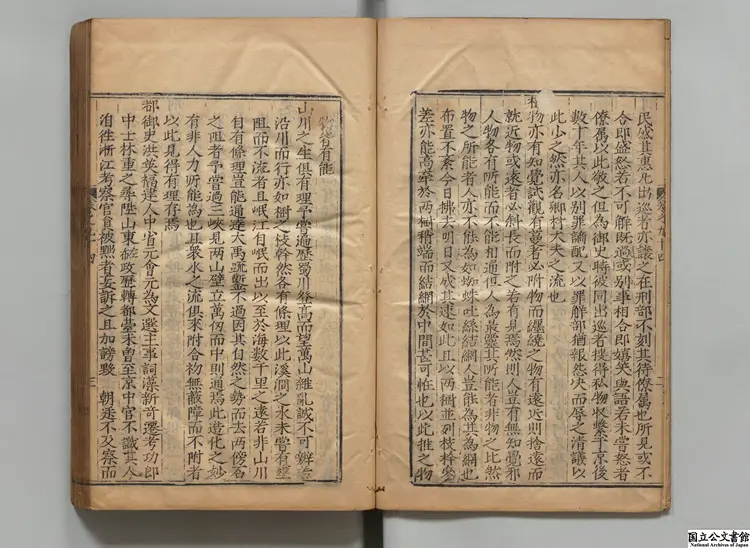 民感其惠凡出巡者亦議之在刑部不刻其待僚屬也所見或不
合即盛怒若不可解既過或别事相合即嬉笑與語若未嘗怒者
僚屬以此敬之但為御史時被同出巡者搜得私物収繫于京後
數十年其人以别罪謫配又以罪解部猶報怨决而辱之清議以
此少之然亦名卿行大夫之流也
植物亦有知覺試觀有蔓者必附物而纒繞之物有遠近則捨遠而
就近物或遠者必斜長而附之若有見焉然則人豈有無知覺邪
人物各有所能而不能相通但人為最靈其所能者非物之比然
物之所能者人亦不能為如蜘蛛吐絲結網人豈能為其為網也
布置不紊今日拂去明日又成其速如此且以兩樹並列枝幹參
差亦能高牽於兩樹稍端而結網於中間甚可怪也以此推之物
二
物皆有能
山川之生俱有理予嘗過歷蜀川登高而望萬山雜亂誠不可辨若
沿川而行亦如樹之枝幹然各有條理以此溪澗之水未嘗有壅
阻而不流者且岷江自岷而出以至於海數千里之遠若非山川
自有條理豈能通達大禹疏鑿不過因其自然之勢而去兩傍石
之阻者予嘗過三峽見兩山壁立萬仞而中則通焉此造化之妙
有非人力所能為也且衆水之流俱來附合物無蔽障而不附者
以此見得有理存焉
都御史洪英福建人中省元會元為文選主事詞藻新奇遷考功郎
中士林重之尋陞山東參政歷轉都臺未曾至京中官不識其人
洎徃浙江考察官員被黜者妄訴之且加謗毁 朝廷不及察而
三
国立公文書館
National Archives of Japan